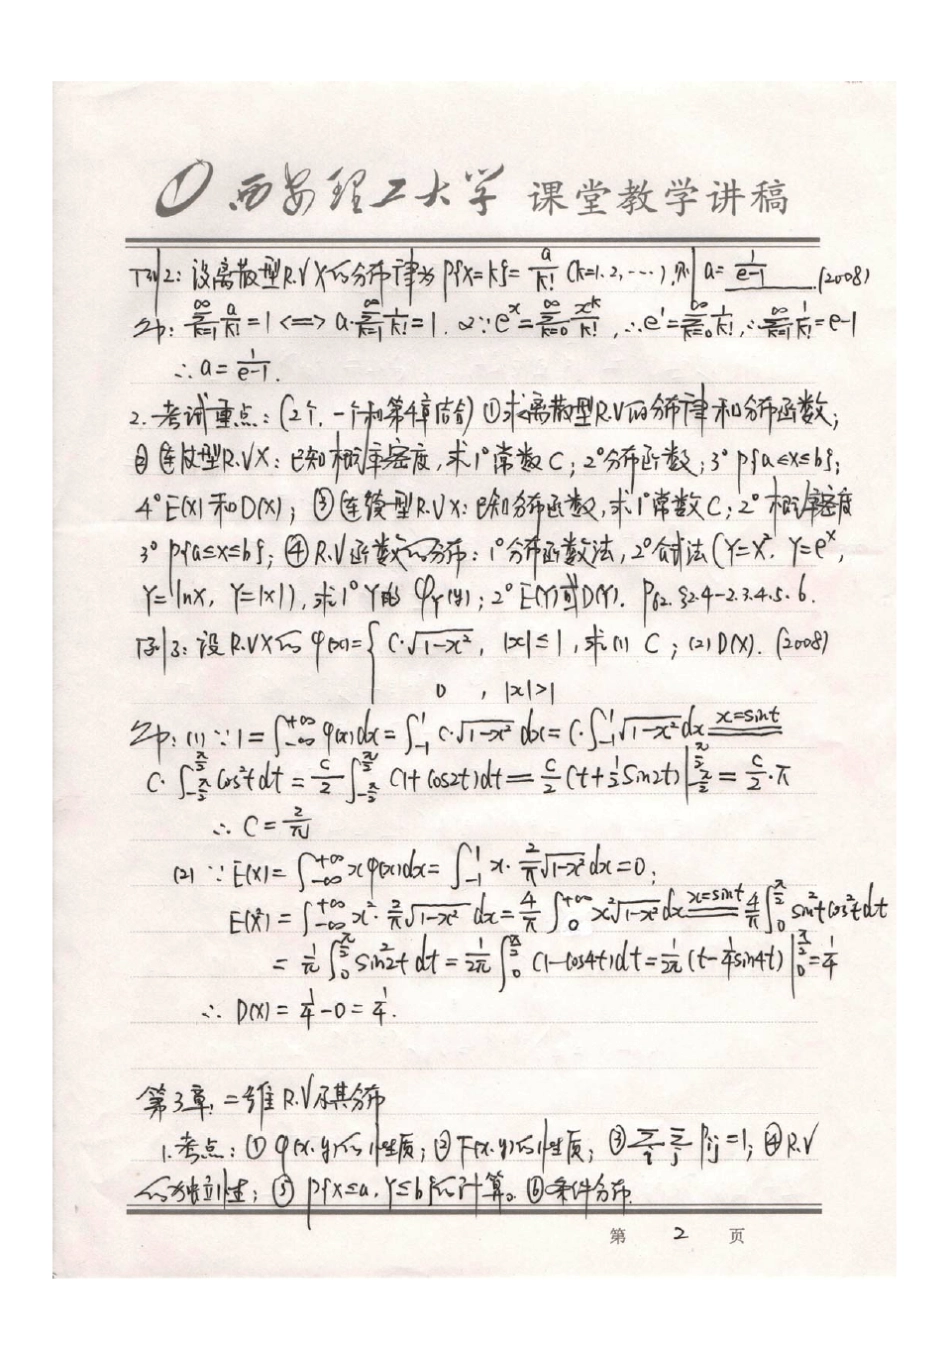 西安理工大学 课堂教学讲稿
例2: 设离散型R.V X的分布律为 P{X=k}= a/k! (k=1.2,…), 则 a= 1/(e-1) .(2008)
解: ∑_{k=1}^{∞} a/k! =1 <=> a·∑_{k=1}^{∞} 1/k! =1. 又∵ e^x = ∑_{k=0}^{∞} x^k/k! , ∴ e^1 = ∑_{k=0}^{∞} 1/k! , ∴ ∑_{k=1}^{∞} 1/k! = e-1
∴ a= 1/(e-1).
2. 考试重点: (2个, 一个和第4章结合) ①求离散型R.V的分布律和分布函数;
②连续型R.V X: 已知概率密度, 求1°常数C; 2°分布函数; 3° P{a≤X≤b};
4° E(X)和D(X); ③连续型R.V X: 已知分布函数, 求1°常数C; 2°概率密度
3° P{a≤X≤b}; ④R.V函数的分布: 1°分布函数法, 2°公式法 (Y=X², Y=e^X,
Y=lnX, Y=|X|), 求1° Y的 φ_Y(y); 2° E(Y)或D(Y). P62. §2.4-2.3.4.5.6.
例3: 设R.V X的 φ(x)= { C·√(1-x²), |x|≤1 , 求(1) C; (2) D(X). (2008)
0 , |x|>1
解: (1) ∵ 1=∫_{-∞}^{+∞} φ(x)dx = ∫_{-1}^{1} C·√(1-x²) dx = C·∫_{-1}^{1} √(1-x²) dx x=sint
C·∫_{-π/2}^{π/2} cos²t dt = C/2 ∫_{-π/2}^{π/2} (1+cos2t)dt = C/2 (t+½sin2t)|_{-π/2}^{π/2} = C/2·π
∴ C= 2/π
(2) ∵ E(X)= ∫_{-∞}^{+∞} xφ(x)dx = ∫_{-1}^{1} x·2/π √(1-x²) dx =0;
E(X²) = ∫_{-∞}^{+∞} x²·2/π √(1-x²) dx = 4/π ∫_{0}^{+∞} x²√(1-x²) dx x=sint 4/π ∫_{0}^{π/2} sin²t cos²t dt
= 1/π ∫_{0}^{π/2} sin²2t dt = 1/2π ∫_{0}^{π/2} (1-cos4t)dt = 1/2π (t-¼sin4t)|_{0}^{π/2} = 1/4
∴ D(X) = 1/4 -0 = 1/4.
第3章: 二维R.V及其分布
1. 考点: ① φ(x.y)的性质; ② F(x.y)的性质; ③ ∑_i ∑_j P_ij =1; ④ R.V
的独立性; ⑤ P{X≤a, Y≤b}的计算。⑥条件分布.
第 2 页